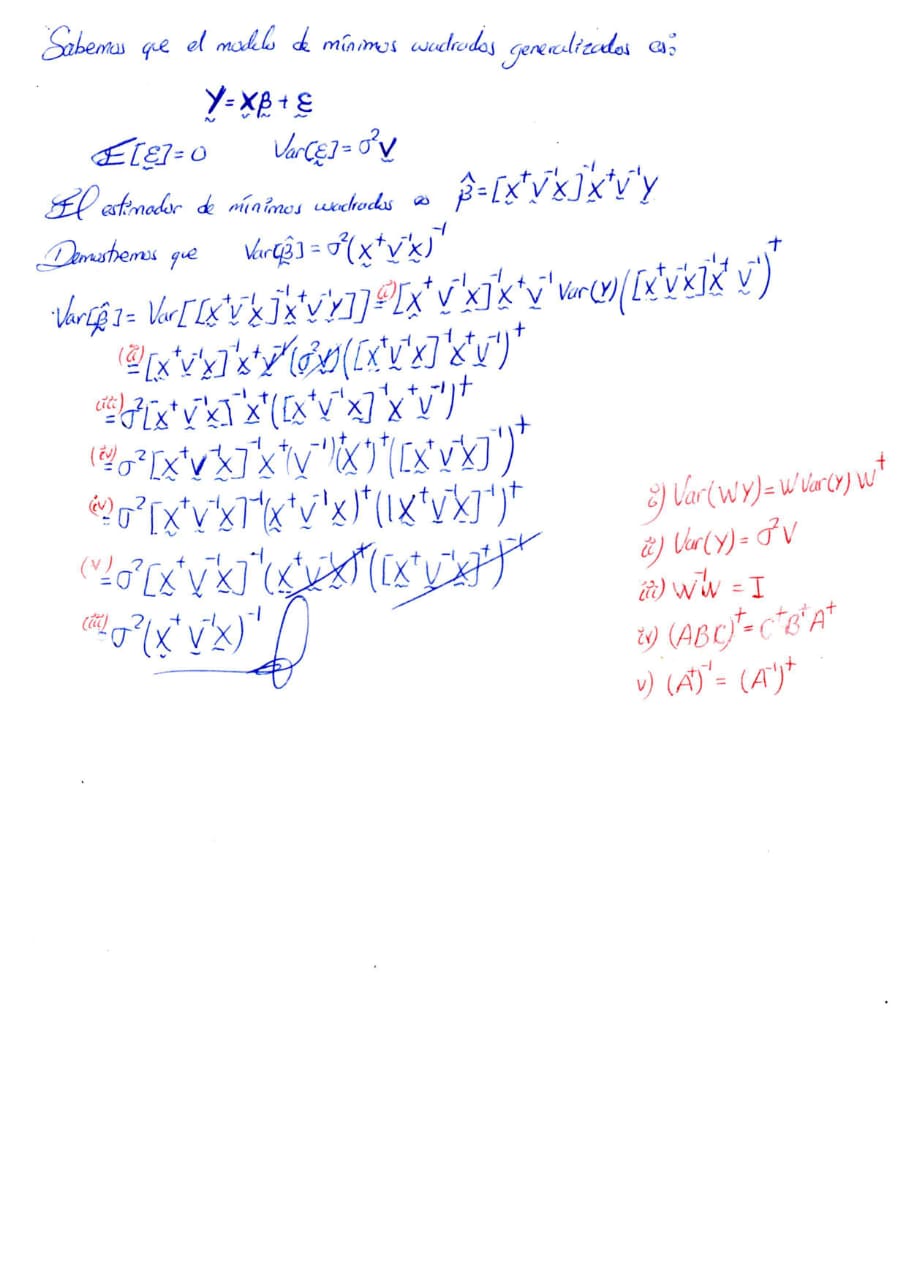 Sabemos que el modelo de mínimos cuadrados generalizados es:
Y = Xβ + ε
E[ε] = 0    Var[ε] = σ²V
El estimador de mínimos cuadrados es β̂ = [XᵗV⁻¹X]⁻¹XᵗV⁻¹Y
Demostremos que Var[β̂] = σ²(XᵗV⁻¹X)⁻¹
Var[β̂] = Var[[XᵗV⁻¹X]⁻¹XᵗV⁻¹Y]] (i)= [XᵗV⁻¹X]⁻¹XᵗV⁻¹ Var(Y)([XᵗV⁻¹X]⁻¹XᵗV⁻¹)ᵗ
(ii)= [XᵗV⁻¹X]⁻¹XᵗV⁻¹(σ²V)([XᵗV⁻¹X]⁻¹XᵗV⁻¹)ᵗ
(iii)= σ²[XᵗV⁻¹X]⁻¹Xᵗ([XᵗV⁻¹X]⁻¹XᵗV⁻¹)ᵗ
(iv)= σ²[XᵗV⁻¹X]⁻¹Xᵗ(V⁻¹)ᵗ(Xᵗ)ᵗ([XᵗV⁻¹X]⁻¹)ᵗ
(iv)= σ²[XᵗV⁻¹X]⁻¹(XᵗV⁻¹X)ᵗ([XᵗV⁻¹X]⁻¹)ᵗ
(v)= σ²[XᵗV⁻¹X]⁻¹(XᵗV⁻¹X)ᵗ([XᵗV⁻¹X]ᵗ)⁻¹
(iii)= σ²(XᵗV⁻¹X)⁻¹
i) Var(WY) = W Var(Y) Wᵗ
ii) Var(Y) = σ²V
iii) W⁻¹W = I
iv) (ABC)ᵗ = CᵗBᵗAᵗ
v) (Aᵗ)⁻¹ = (A⁻¹)ᵗ